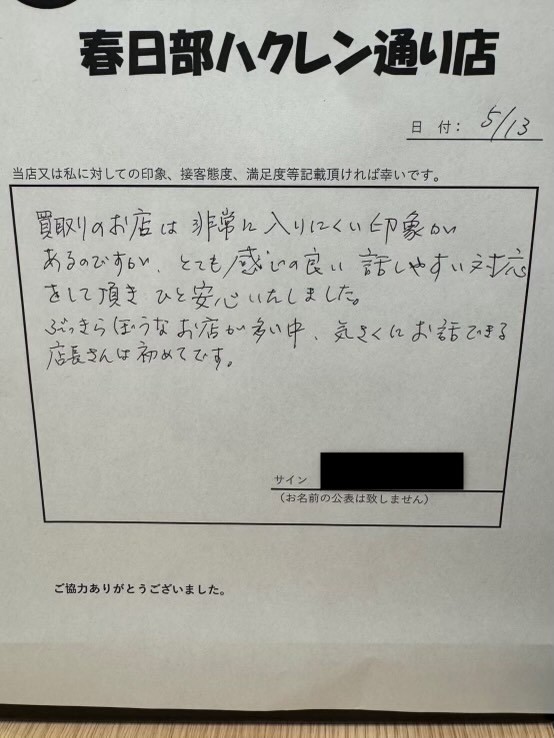 春日部ハクレン通り店
日 付： 5/13
当店又は私に対しての印象、接客態度、満足度等記載頂ければ幸いです。
買取りのお店は非常に入りにくい印象が
あるのですが、とても感じの良い話しやすい対応
をして頂きひと安心いたしました。
ぶっきらぼうなお店が多い中、気さくにお話できる
店長さんは初めてです。
サイン
（お名前の公表は致しません）
ご協力ありがとうございました。